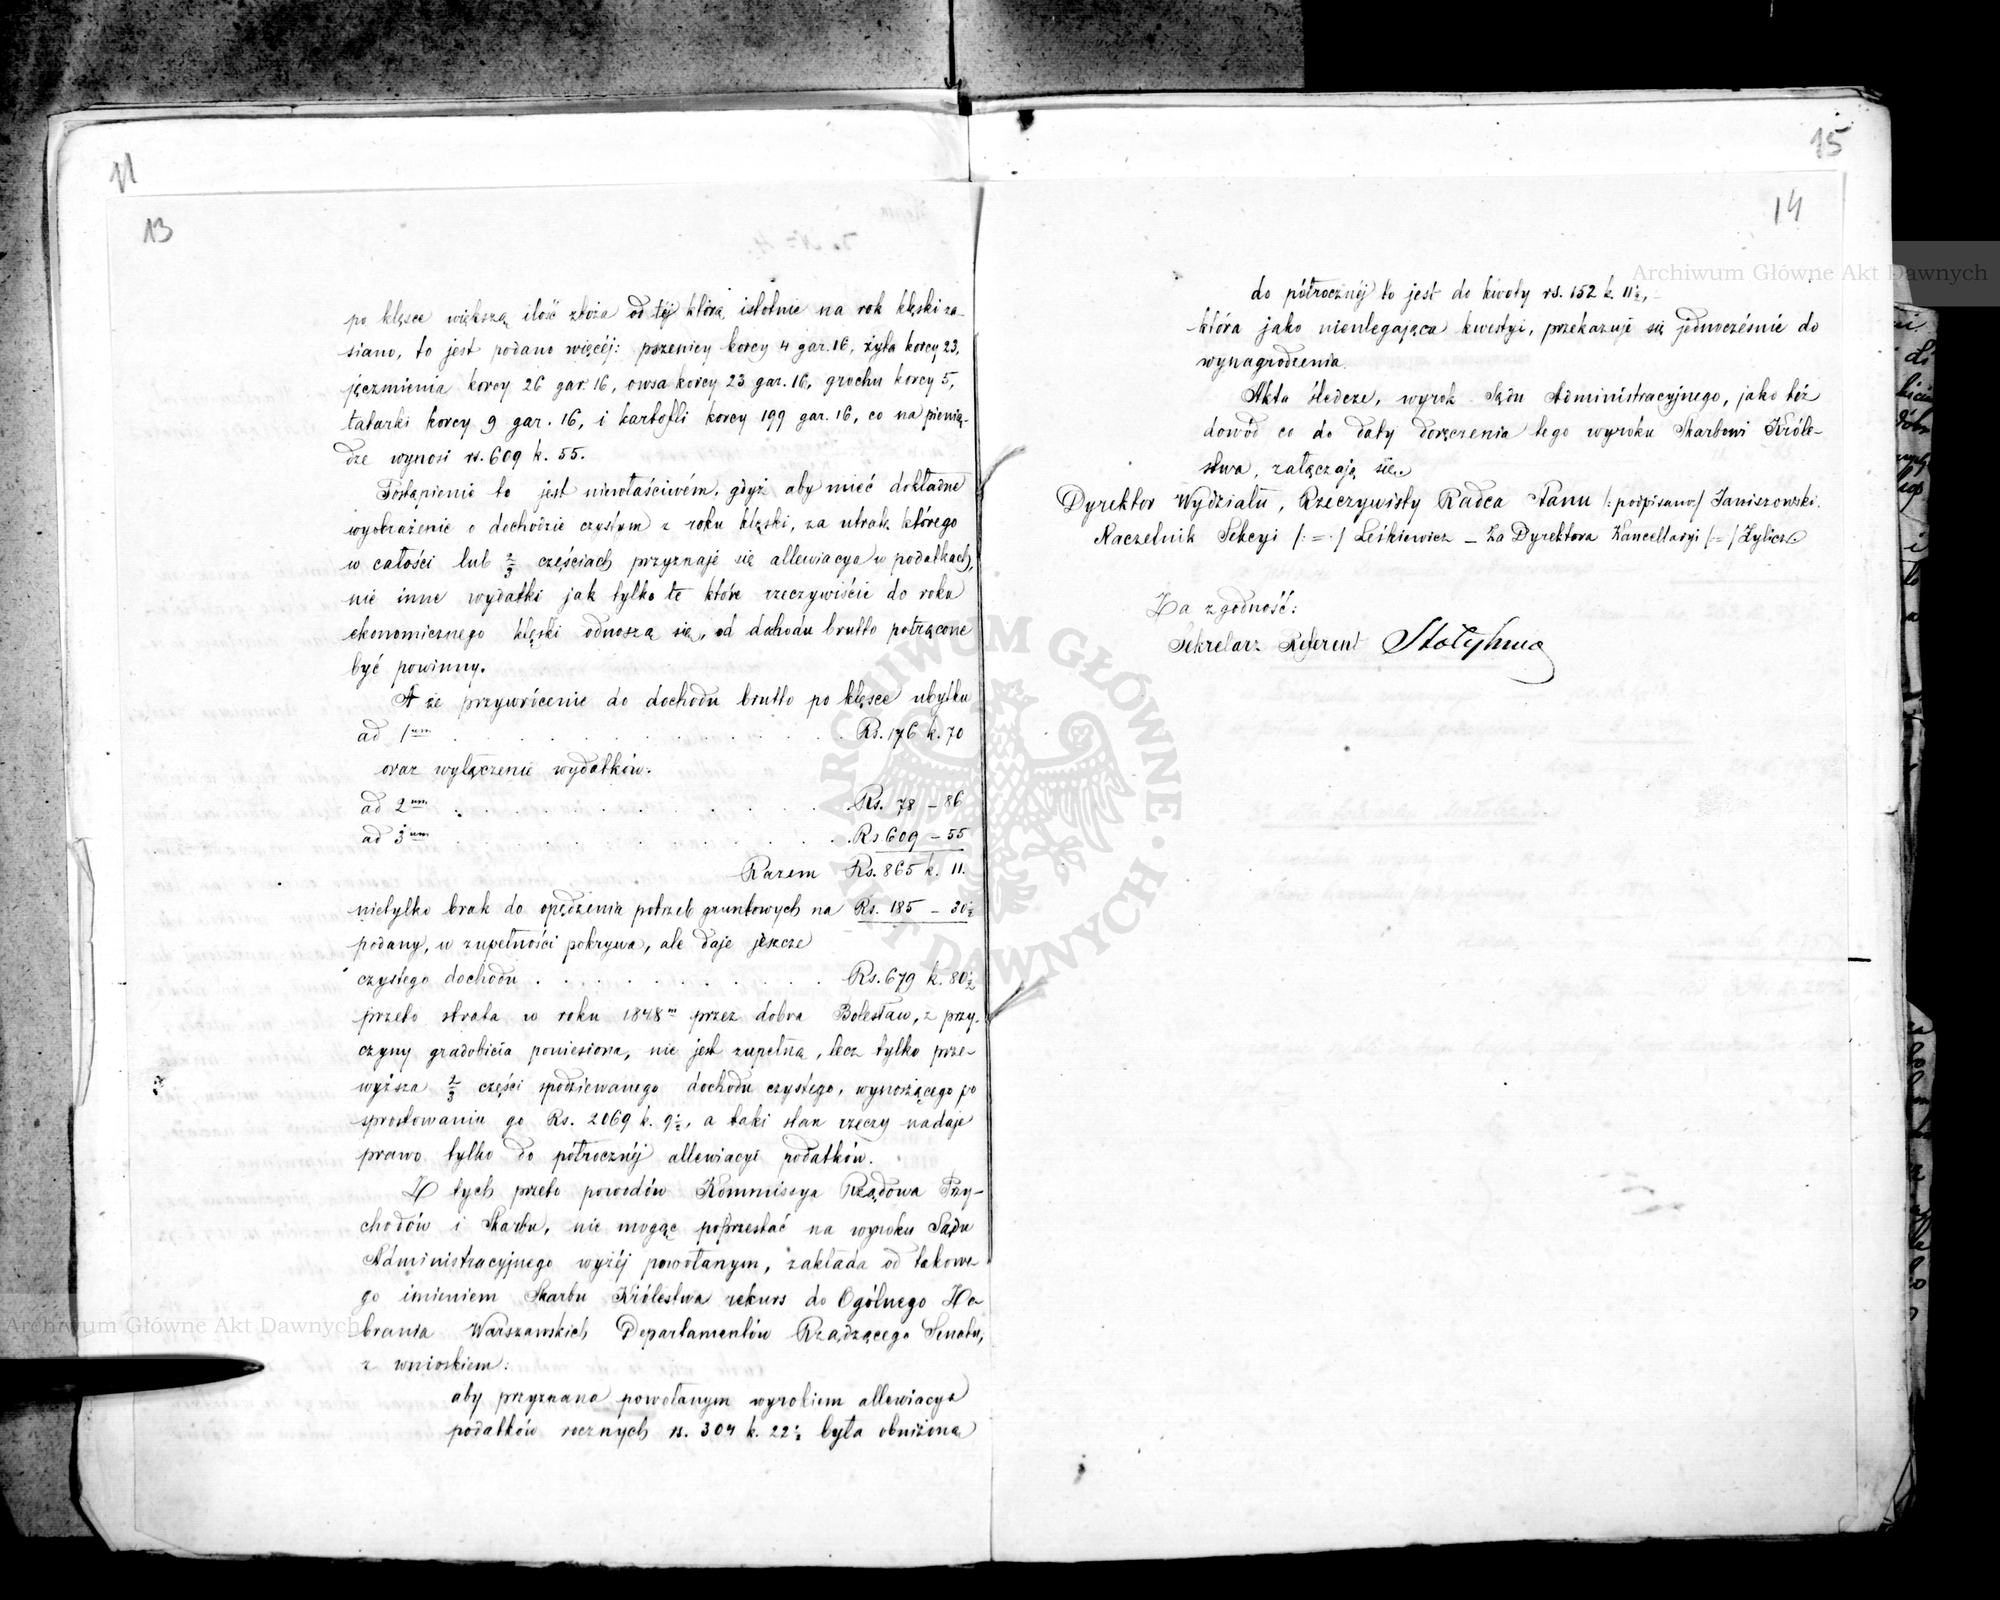 11
13
po klęsce większą ilość zboża od téj którą istotnie na rok klęski za-
siano, to jest podano więcéj: pszenicy korcy 4 gar. 16, żyta korcy 23,
jęczmienia korcy 26 gar. 16, owsa korcy 23 gar. 16, grochu korcy 5,
tatarki korcy 9 gar. 16, i kartofli korcy 199 gar. 16, co na pienią-
dze wynosi rs. 609 k. 55.
Postąpienie to jest niewłaściwém, gdyż aby mieć dokładne
wyobrażenie o dochodzie czystym z roku klęski, za utratę którego
w całości lub 2/3 częściach przyznaje się allewiacya w podatkach,
nie inne wydatki jak tylko te które rzeczywiście do roku
ekonomicznego klęski odnoszą się, od dochodu brutto potrącone
być powinny.
A że przywrócenie do dochodu brutto po klęsce ubytku
ad 1um . . . . . . . . . . . . Rs. 176 k. 70
oraz wyłączenie wydatków.
ad 2um . . . . . . . . . . . . Rs. 78 – 86
ad 3um . . . . . . . . . . . . Rs 609 – 55
Razem Rs. 865 k. 11.
nietylko brak do opędzenia potrzeb gruntowych na Rs. 185 – 30½
podany, w zupełności pokrywa, ale daje jeszcze
czystego dochodu . . . . . . . . . . Rs. 679 k. 80½
przeto strata w roku 1848m przez dobra Bolesław, z przy-
czyny gradobicia poniesiona, nie jest zupełną, lecz tylko prze-
wyższa 2/3 części spodziewanego dochodu czystego, wynoszącego po
sprostowaniu go Rs. 2069 k. 9½, a taki stan rzeczy nadaje
prawo tylko do półrocznéj allewiacyi podatków.
Z tych przeto powodów Kommissya Rządowa Przy-
chodów i Skarbu, nie mogąc poprzestać na wyroku Sądu
Administracyjnego wyżéj powołanym, zakłada od takowe-
go imieniem Skarbu Królestwa rekurs do Ogólnego Ze-
brania Warszawskich Departamentów Rządzącego Senatu,
z wnioskiem:
aby przyznana powołanym wyrokiem allewiacya
podatków rocznych rs. 304 k. 22½ była obniżoną
15
14
do półrocznéj to jest do kwoty rs. 152 k. 11½, –
która jako nieulegająca kwestyi, przekazuje się jednocześnie do
wynagrodzenia.
Akta śledcze, wyrok Sądu Administracyjnego, jako też
dowód co do daty doręczenia tego wyroku Skarbowi Króle-
stwa, załączają się.
Dyrektor Wydziału, Rzeczywisty Radca Stanu /:podpisano:/ Janiszowski.
Naczelnik Sekcyi /:=:/ Leśkiewicz – Za Dyrektora Kancellaryi /:=:/ Hylicz
Za zgodność:
Sekretarz Referent
Archiwum Główne Akt Dawnych
Archiwum Główne Akt Dawnych
ARCHIWUM GŁÓWNE AKT DAWNYCH